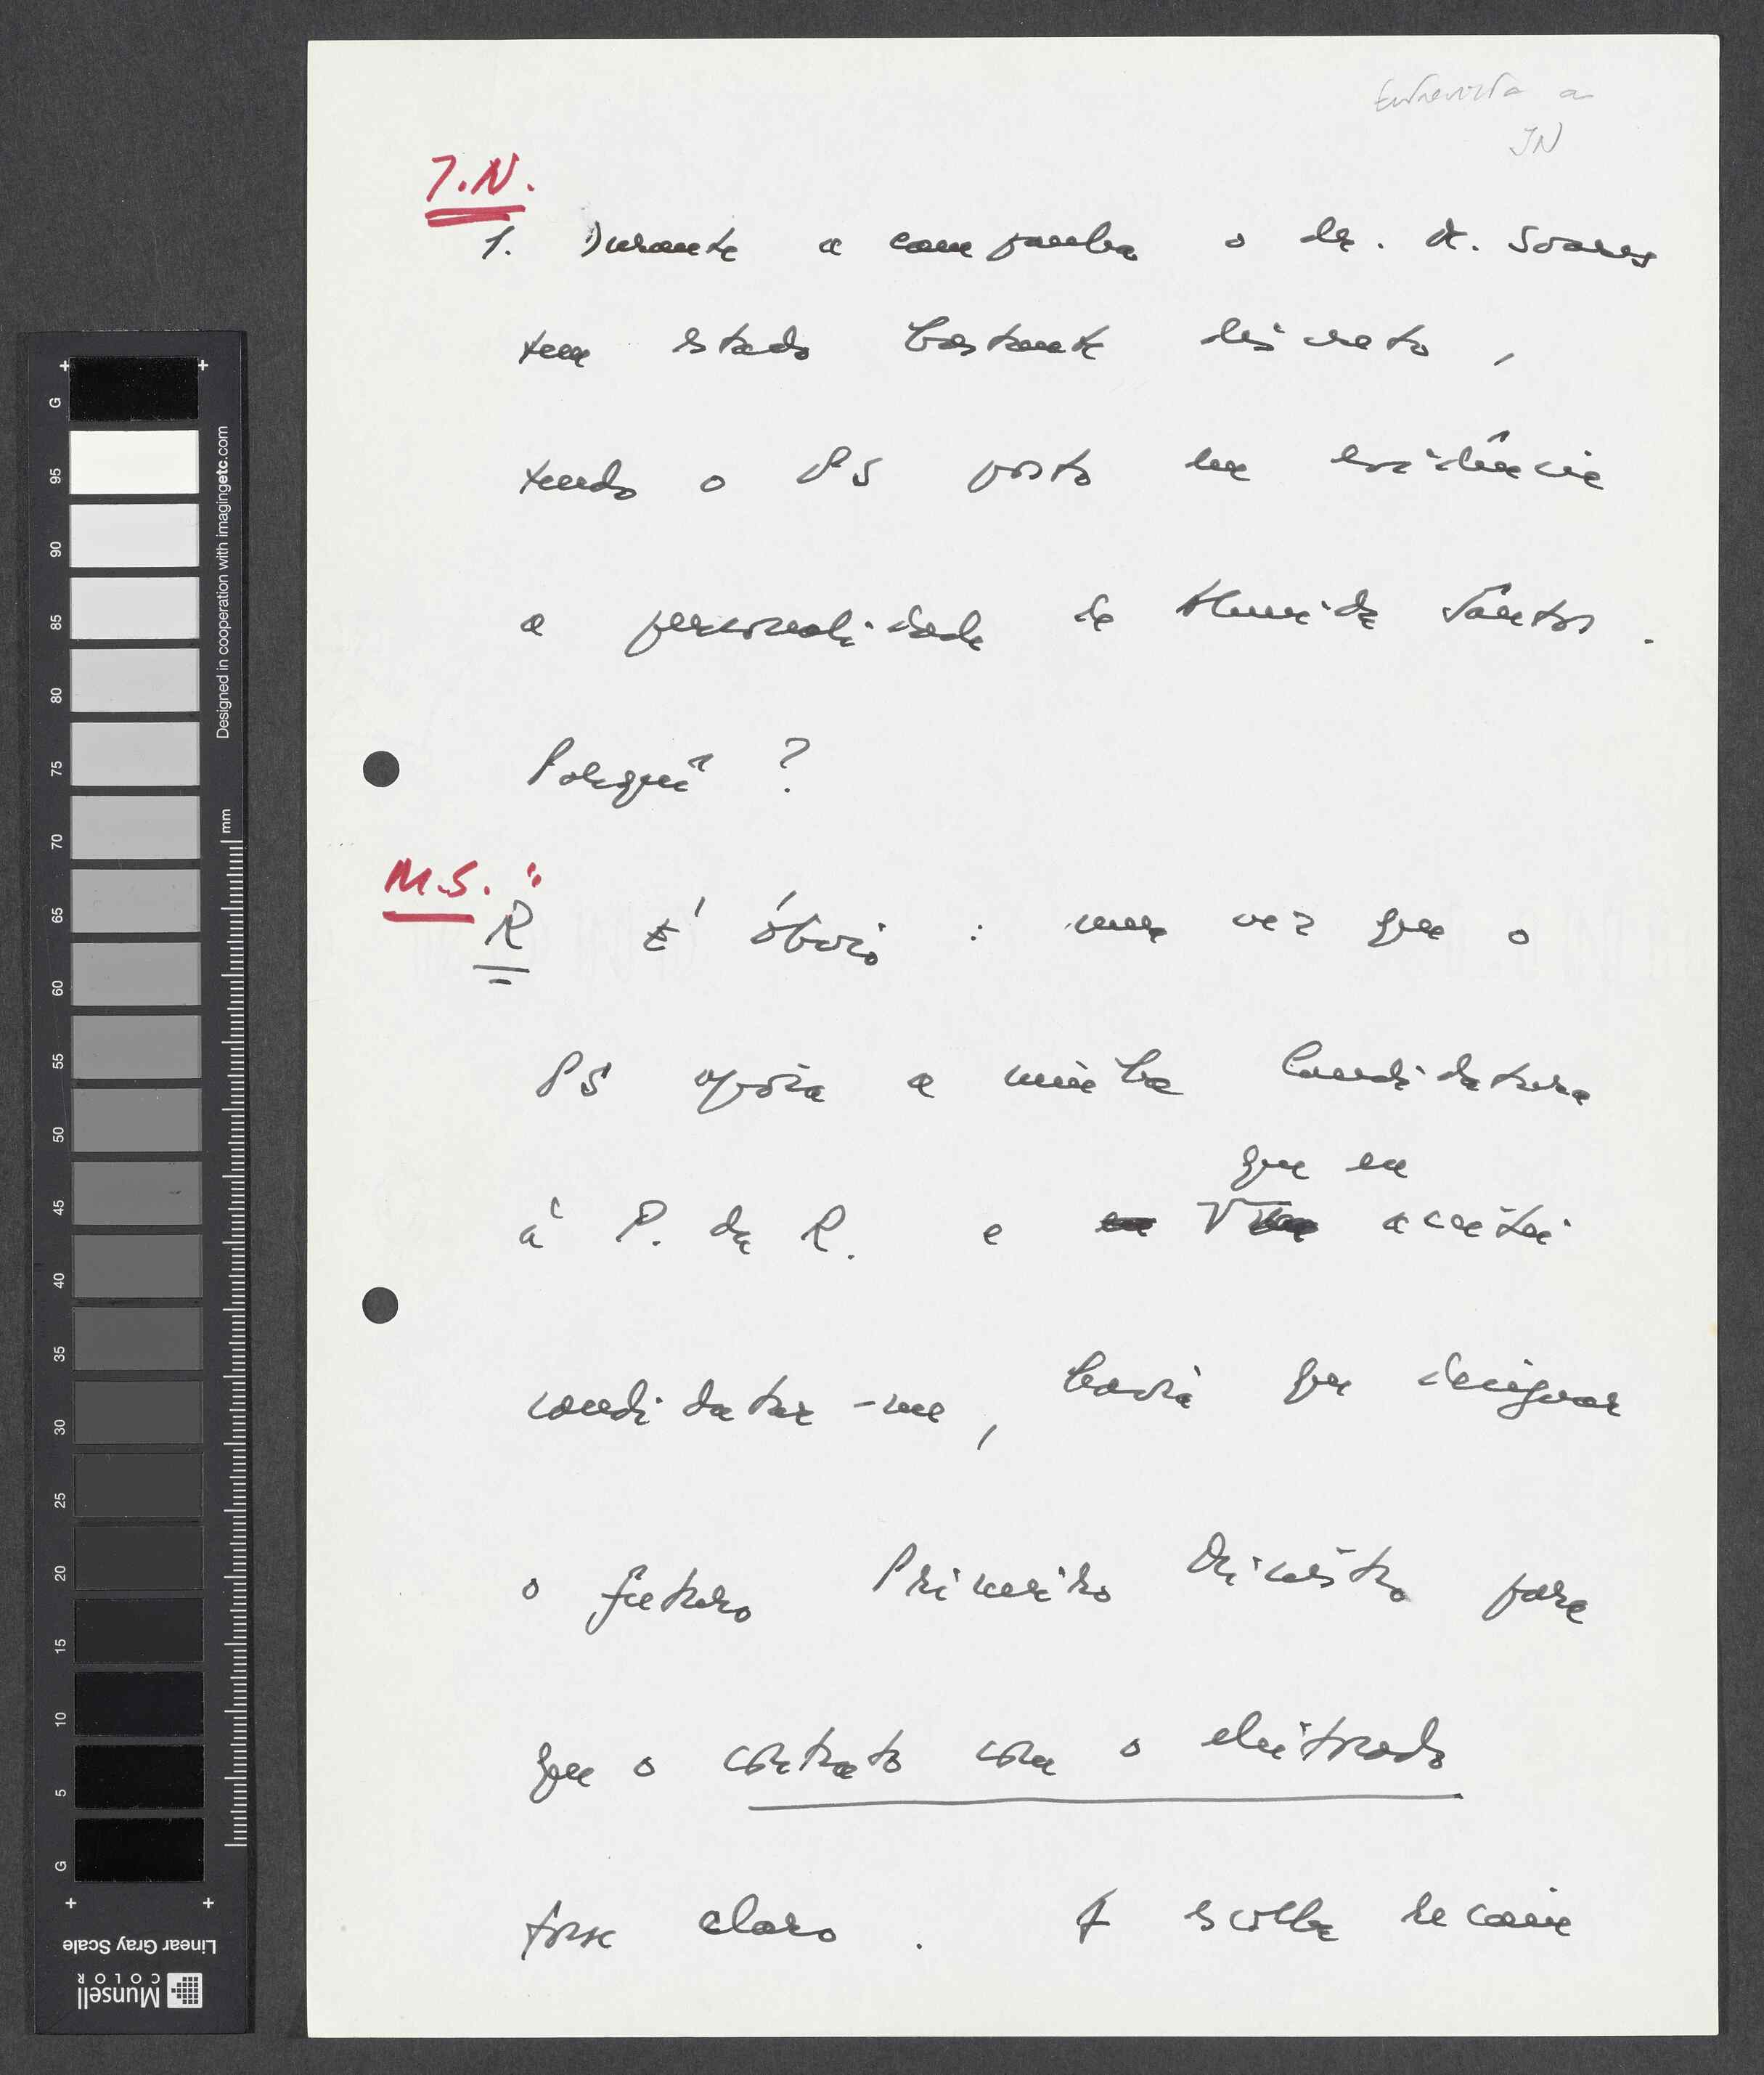 Entrevista a
JN
J.N.
1. Durante a campanha o dr. M. Soares
tem estado bastante discreto,
tendo o PS posto em evidência
a personalidade de Almeida Santos.
Porquê?
M.S. "
R É óbvio: uma vez que o
PS apoia a minha candidatura
que eu
à P. da R. e aceitei
candidatar-me, havia que designar
o futuro Primeiro Ministro para
que o contrato com o eleitorado
fosse claro. A escolha recaiu
G
95
90
85
80
75
70
65
60
55
50
45
40
35
30
25
20
15
10
5
G
Designed in cooperation with imagingetc.com
mm
Linear Gray Scale
Munsell
COLOR